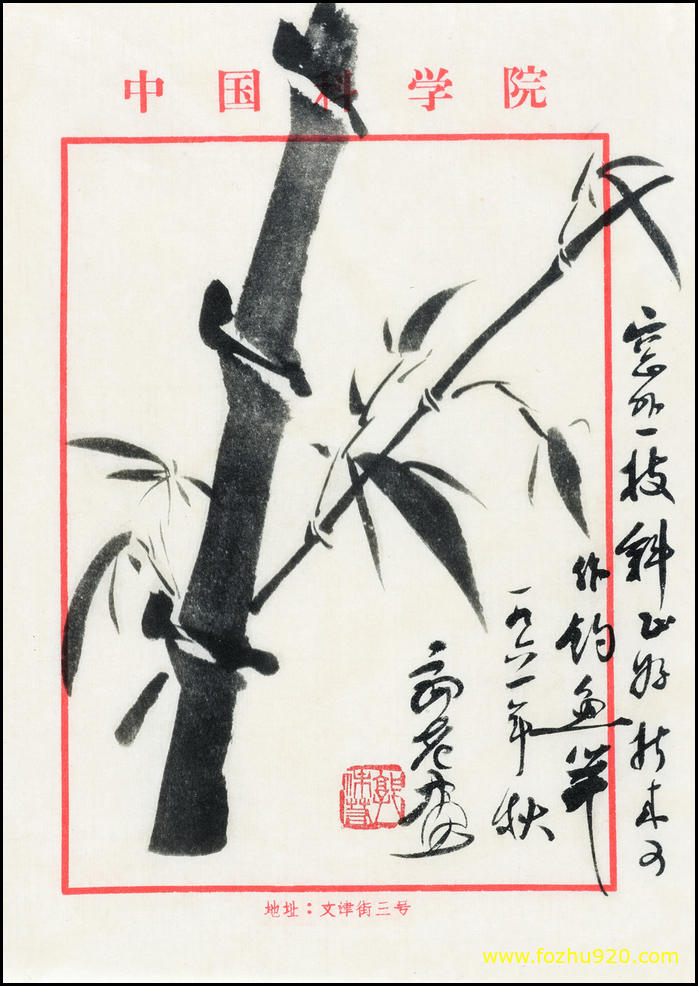 中国科学院
窗外一枝斜正好折来可
作钓鱼竿
一九六一年秋
郭沫若
地址：文津街三号
www.fozhu920.com